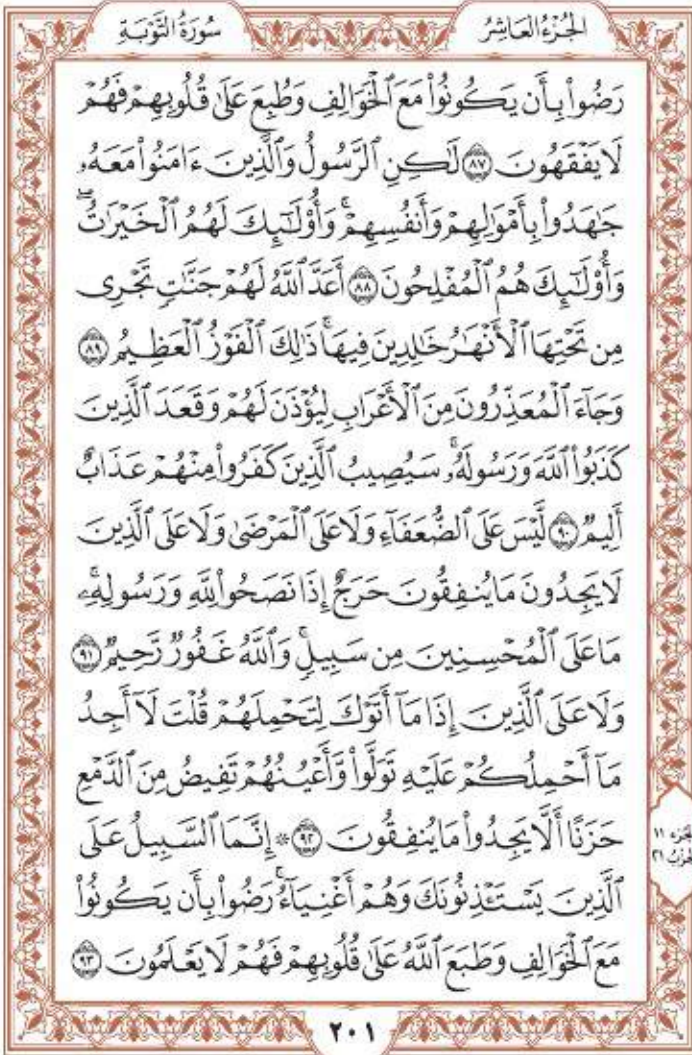 الجُزْءُ العَاشِرُ
سُورَةُ التَّوْبَةِ
رَضُوا۟ بِأَن يَكُونُوا۟ مَعَ ٱلْخَوَالِفِ وَطُبِعَ عَلَىٰ قُلُوبِهِمْ فَهُمْ
لَا يَفْقَهُونَ ٨٧ لَٰكِنِ ٱلرَّسُولُ وَٱلَّذِينَ ءَامَنُوا۟ مَعَهُۥ
جَٰهَدُوا۟ بِأَمْوَٰلِهِمْ وَأَنفُسِهِمْۚ وَأُو۟لَٰٓئِكَ لَهُمُ ٱلْخَيْرَٰتُۖ
وَأُو۟لَٰٓئِكَ هُمُ ٱلْمُفْلِحُونَ ٨٨ أَعَدَّ ٱللَّهُ لَهُمْ جَنَّٰتٍ تَجْرِى
مِن تَحْتِهَا ٱلْأَنْهَٰرُ خَٰلِدِينَ فِيهَاۚ ذَٰلِكَ ٱلْفَوْزُ ٱلْعَظِيمُ ٨٩
وَجَآءَ ٱلْمُعَذِّرُونَ مِنَ ٱلْأَعْرَابِ لِيُؤْذَنَ لَهُمْ وَقَعَدَ ٱلَّذِينَ
كَذَبُوا۟ ٱللَّهَ وَرَسُولَهُۥۚ سَيُصِيبُ ٱلَّذِينَ كَفَرُوا۟ مِنْهُمْ عَذَابٌ
أَلِيمٌ ٩٠ لَّيْسَ عَلَى ٱلضُّعَفَآءِ وَلَا عَلَى ٱلْمَرْضَىٰ وَلَا عَلَى ٱلَّذِينَ
لَا يَجِدُونَ مَا يُنفِقُونَ حَرَجٌ إِذَا نَصَحُوا۟ لِلَّهِ وَرَسُولِهِۦۚ
مَا عَلَى ٱلْمُحْسِنِينَ مِن سَبِيلٍۚ وَٱللَّهُ غَفُورٌ رَّحِيمٌ ٩١
وَلَا عَلَى ٱلَّذِينَ إِذَا مَآ أَتَوْكَ لِتَحْمِلَهُمْ قُلْتَ لَآ أَجِدُ
مَآ أَحْمِلُكُمْ عَلَيْهِ تَوَلَّوا۟ وَّأَعْيُنُهُمْ تَفِيضُ مِنَ ٱلدَّمْعِ
حَزَنًا أَلَّا يَجِدُوا۟ مَا يُنفِقُونَ ٩٢ ۞ إِنَّمَا ٱلسَّبِيلُ عَلَى
ٱلَّذِينَ يَسْتَـْٔذِنُونَكَ وَهُمْ أَغْنِيَآءُۚ رَضُوا۟ بِأَن يَكُونُوا۟
مَعَ ٱلْخَوَالِفِ وَطَبَعَ ٱللَّهُ عَلَىٰ قُلُوبِهِمْ فَهُمْ لَا يَعْلَمُونَ ٩٣
جزء ١١
حزب ٢١
٢٠١